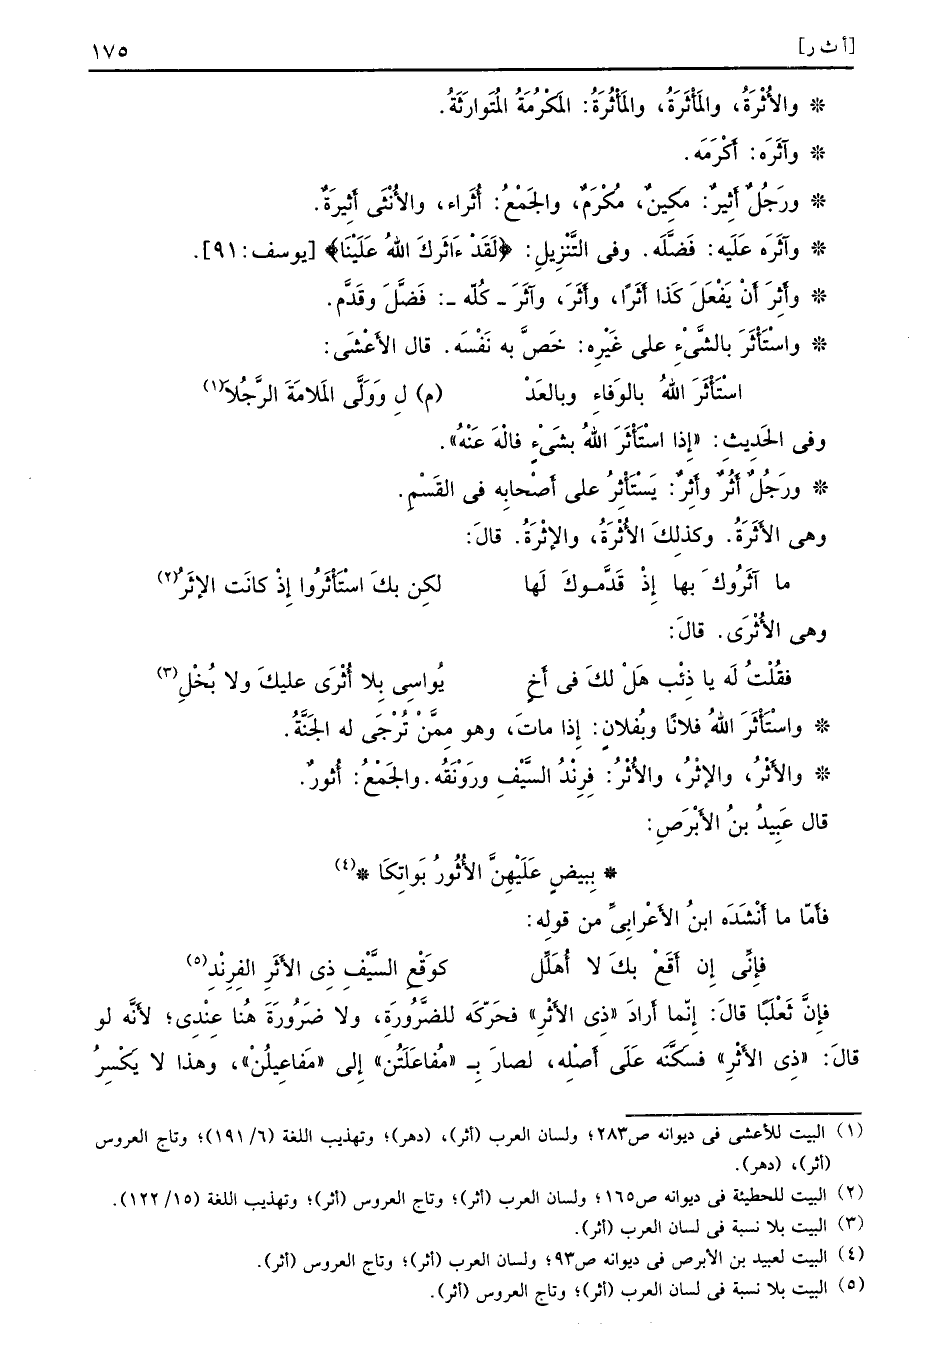 [أ ث ر] ١٧٥
* والأُثْرَةُ، والمَأْثَرَةُ، والمَأْثُرَةُ: المَكْرُمَةُ المُتَوارَثَةُ.
* وآثَرَه: أَكْرَمَه.
* ورَجُلٌ أَثِيرٌ: مَكِينٌ، مُكْرَمٌ، والجَمْعُ: أُثَراء، والأُنْثَى أَثِيرَةٌ.
* وآثَرَه عَلَيه: فَضَّلَه. وفى التَّنْزِيلِ: ﴿لَقَدْ ءَاثَرَكَ اللهُ عَلَيْنَا﴾ [يوسف: ٩١].
* وأَثِرَ أَنْ يَفْعَلَ كَذا أَثَرًا، وأَثَرَ، وآثَرَ ـ كُلّه ـ: فَضَّلَ وقَدَّم.
* واسْتَأْثَرَ بالشَّيْءِ على غَيْرِه: خَصَّ به نَفْسَه. قال الأَعْشَى:
اسْتَأْثَرَ اللهُ بالوَفاءِ وبالعَدْ (م) لِ وَوَلَّى المَلامَةَ الرَّجُلاَ(١)
وفى الحَدِيثِ: «إِذا اسْتَأْثَرَ اللهُ بشَىْءٍ فالْهَ عَنْهُ».
* ورَجُلٌ أَثُرٌ وأَثِرٌ: يَسْتَأْثِرُ على أَصْحابِه فى القَسْمِ.
وهى الأَثَرَةُ. وكذلِكَ الأُثْرَةُ، والإثْرَةُ. قالَ:
ما آثَرُوكَ بها إِذْ قَدَّمـوكَ لَها لكِن بكَ اسْتَأْثَرُوا إِذْ كانَت الإثَرُ(٢)
وهى الأُثْرَى. قالَ:
فقُلْتُ لَه يا ذِئْب هَلْ لكَ فى أَخٍ يُواسِى بِلا أُثْرَى عليكَ ولا بُخْلِ(٣)
* واسْتَأْثَرَ اللهُ فلانًا وبُفلانٍ: إِذا ماتَ، وهو مِمَّنْ تُرْجَى له الجَنَّةُ.
* والأَثْرُ، والإثْرُ، والأُثْرُ: فِرِنْدُ السَّيْفِ ورَوْنَقُه. والجَمْعُ: أُثورٌ.
قال عَبِيدُ بنُ الأَبْرَصِ:
* بِبيضٍ عَلَيْهِنَّ الأُثُورُ بَواتِكَا *(٤)
فأَمّا ما أَنْشَدَه ابنُ الأَعْرابِىِّ من قوله:
فإنِّى إن أَقَعْ بكَ لا أُهَلِّل كوَقْعِ السَّيْفِ ذى الأَثَرِ الفِرِنْدِ(٥)
فإنَّ ثَعْلَبًا قالَ: إِنّما أرادَ «ذِى الأَثْرِ» فحَرّكَه للضَّرُورَةِ، ولا ضَرُورَةَ هُنا عِنْدِى؛ لأنَّه لو
قالَ: «ذِى الأَثْرِ» فسَكَّنَه عَلَى أَصْلِه، لصارَ بِـ «مُفاعَلَتُن» إلى «مَفاعِيلُنْ»، وهذا لا يَكْسِرُ
(١) البيت للأعشى فى ديوانه ص٢٨٣؛ ولسان العرب (أثر)، (دهر)؛ وتهذيب اللغة (٦/ ١٩١)؛ وتاج العروس
(أثر)، (دهر).
(٢) البيت للحطيئة فى ديوانه ص١٦٥؛ ولسان العرب (أثر)؛ وتاج العروس (أثر)؛ وتهذيب اللغة (١٥/ ١٢٢).
(٣) البيت بلا نسبة فى لسان العرب (أثر).
(٤) البيت لعبيد بن الأبرص فى ديوانه ص٩٣؛ ولسان العرب (أثر)؛ وتاج العروس (أثر).
(٥) البيت بلا نسبة فى لسان العرب (أثر)؛ وتاج العروس (أثر).